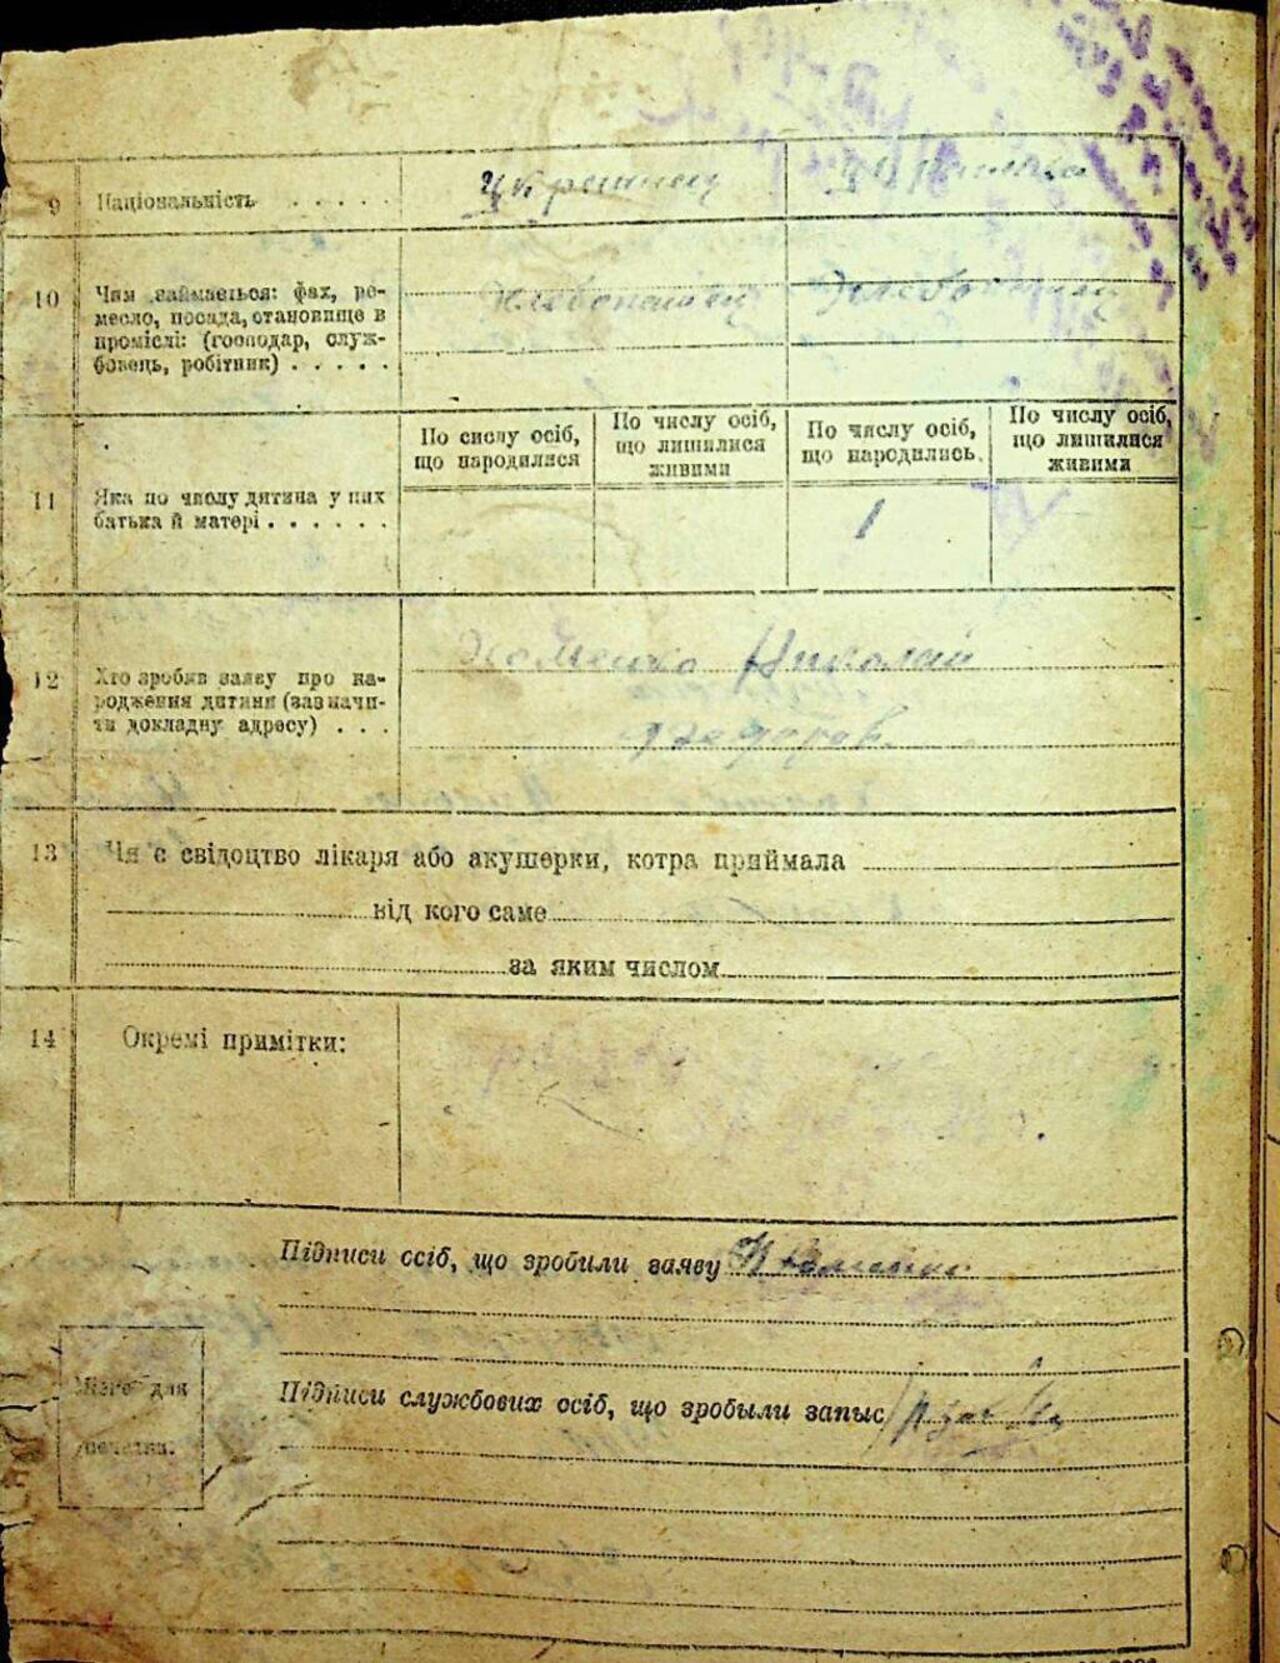 9 Національність . . . . . Украинец Украинка
10 Чим займається: фах, ре-
месло, посада, становище в
промислі: (господар, служ-
бовець, робітник) . . . . .
Хлебопашец
По сислу осіб, що народилися
По числу осіб, що лишилися живими
По числу осіб, що народились.
По числу осіб, що лишилися живими
11 Яка по числу дитина у них
батька й матері . . . . . .
1
12 Хто зробив заяву про на-
родження дитини (зазначи-
ти докладну адресу) . . .
Хоменко Николай
13 Чи є свідоцтво лікаря або акушерки, котра приймала
від кого саме
за яким числом
14 Окремі примітки:
Підписи осіб, що зробили заяву Н Хоменко
Підписи службових осіб, що зробыли запыс
Місце для
печатки.